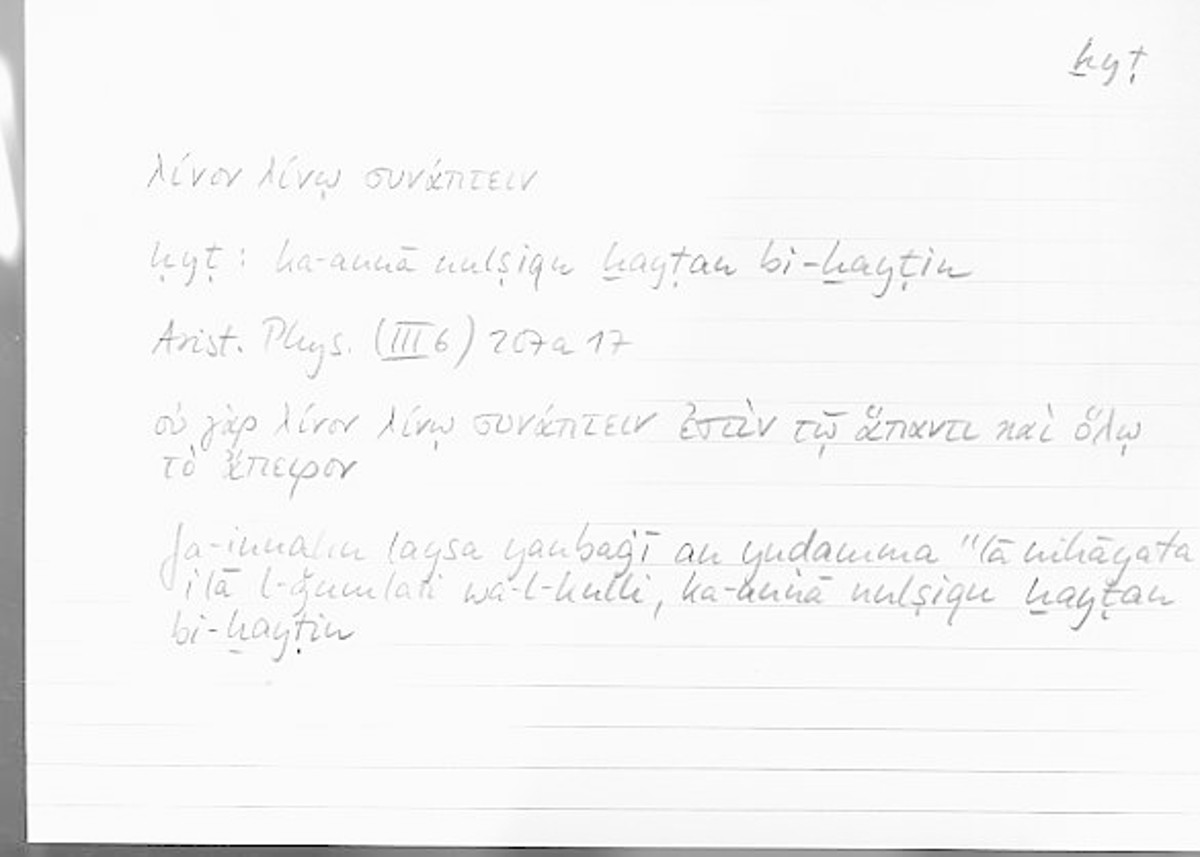 ḫyṭ
λίνον λίνῳ συνάπτειν
ḫyṭ: ka-annā nulṣiqu ḫayṭan bi-ḫayṭin
Arist. Phys. (III 6) 207a 17
οὐ γὰρ λίνον λίνῳ συνάπτειν ἐστὶν τῷ ἅπαντι καὶ ὅλῳ
τὸ ἄπειρον
fa-innahu laysa yanbaġī an yuḍamma "lā nihāyata
ilā l-ǧumlati wa-l-kulli, ka-annā nulṣiqu ḫayṭan
bi-ḫayṭin